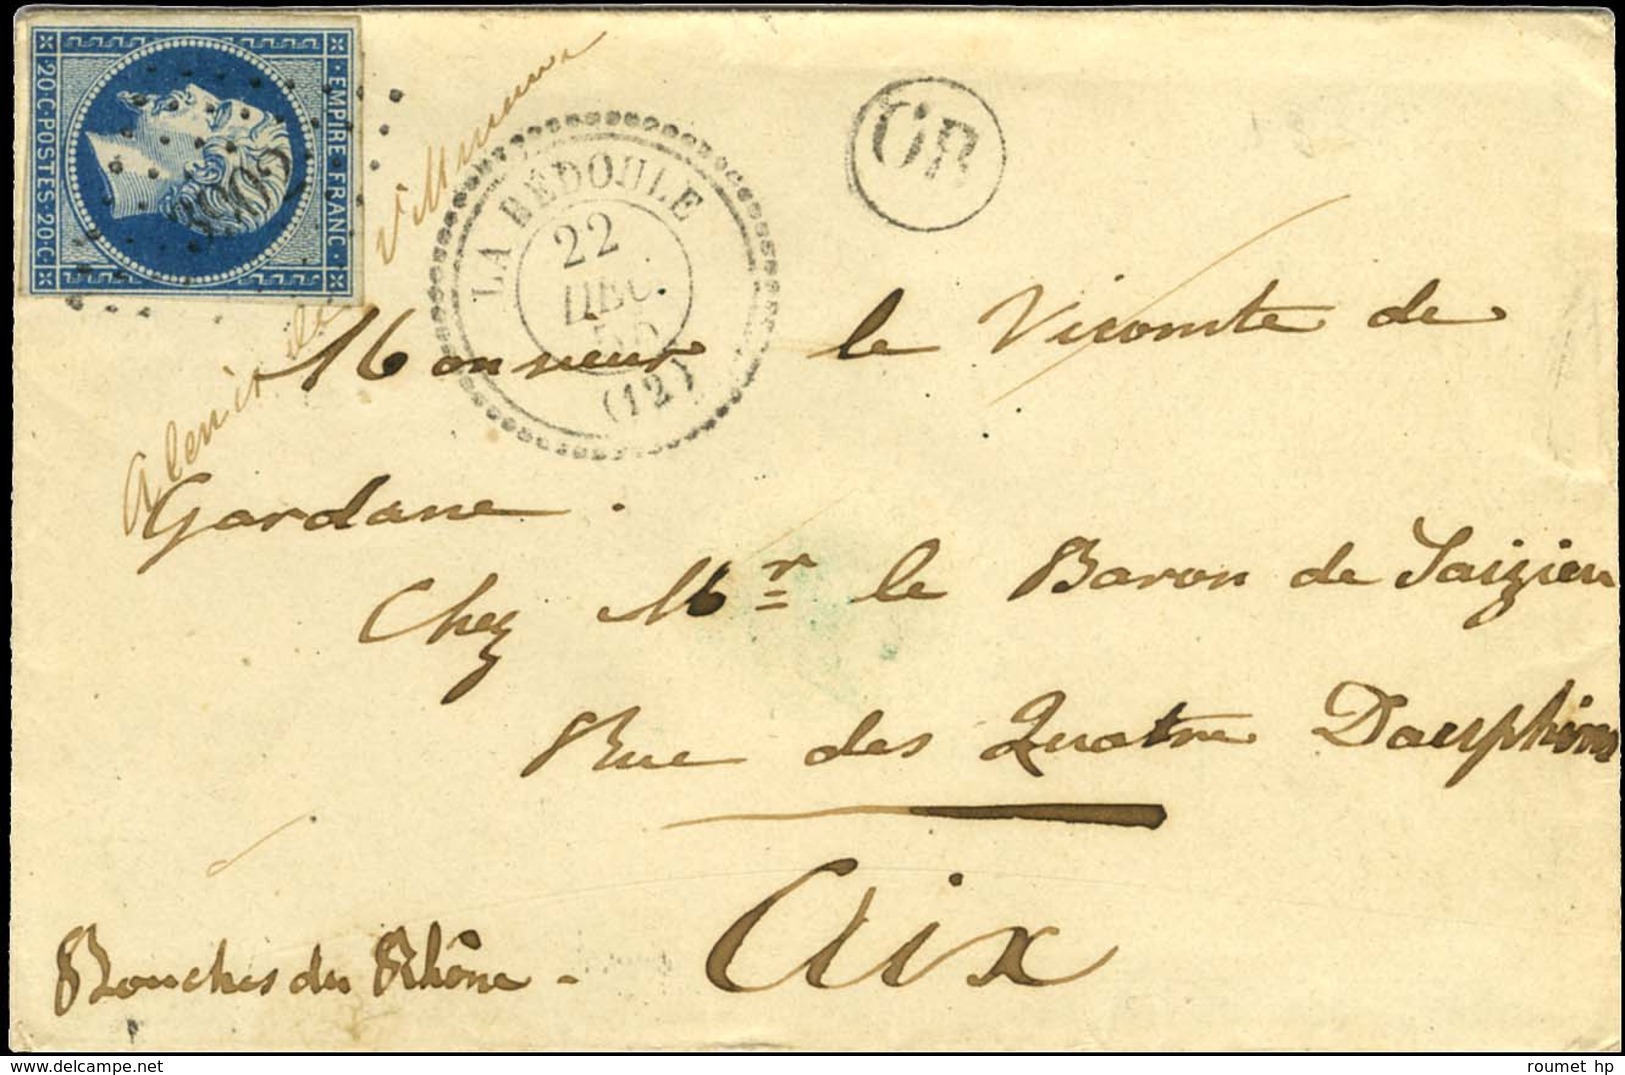 EMPIRE FRANC
20·C·POSTES·20·C
3902
LA BÉDOULE
22
DEC.
(12)
OR
Monsieur le Vicomte de
Gardane.
Chez Mr le Baron de Saizieu
Rue des Quatre Dauphins
Aix
Bouches du Rhône -
roumet hp